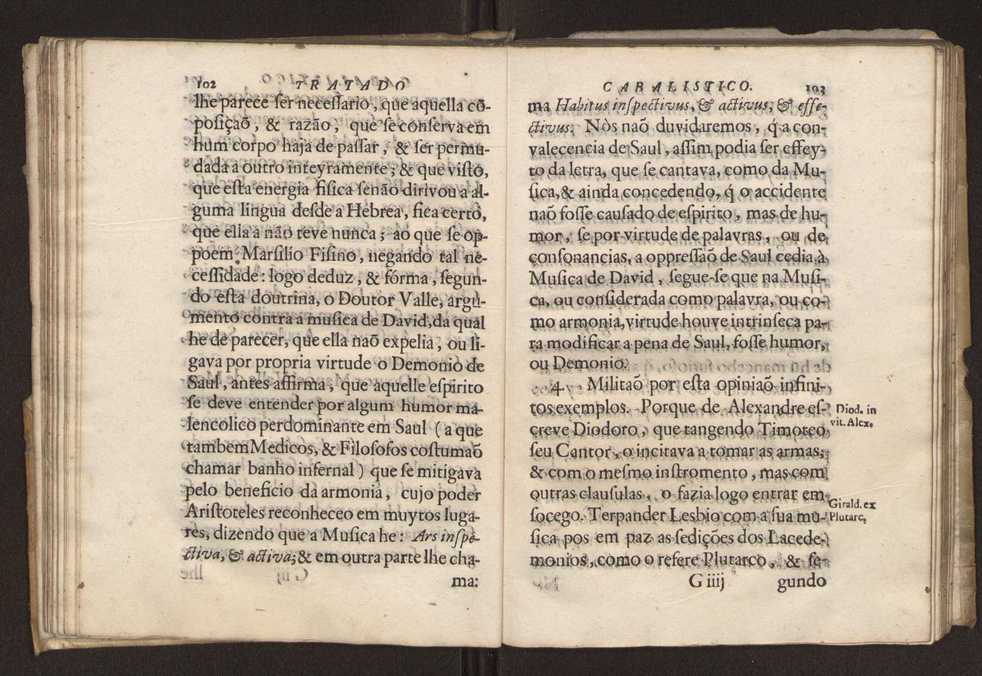 102 TRATADO
lhe parece ser necessario, que aquella cõ-
posiçaõ, & razão, que se conserva em
hum corpo haja de passar, & ser permu-
dada a outro inteyramente; & que visto,
que esta energia fisica senão dirivou a al-
guma lingua desde a Hebrea, fica certo,
que ella a não teve nunca; ao que se op-
poem Marsilio Fisino, negando tal ne-
cessidade: logo deduz, & fórma, segun-
do esta doutrina, o Doutor Valle, argu-
mento contra a musica de David, da qual
he de parecer, que ella naõ expelia, ou li-
gava por propria virtude o Demonio de
Saul, antes affirma, que aquelle espirito
se deve entender por algum humor ma-
lencolico perdominante em Saul (a que
tambem Medicos, & Filosofos costumaõ
chamar banho infernal) que se mitigava
pelo beneficio da armonia, cujo poder
Aristoteles reconheceo em muytos luga-
res, dizendo que a Musica he: Ars inspe-
ctiva, & activa; & em outra parte lhe cha-
ma:
CABALISTICO. 103
ma Habitus inspectivus, & activus, & effe-
ctivus. Nòs naõ duvidaremos, q̃ a con-
valecencia de Saul, assim podia ser effey-
to da letra, que se cantava, como da Mu-
sica, & ainda concedendo, q̃ o accidente
naõ fosse causado de espirito, mas de hu-
mor, se por virtude de palavras, ou de
consonancias, a oppressaõ de Saul cedia à
Musica de David, segue-se que na Musi-
ca, ou considerada como palavra, ou co-
mo armonia, virtude houve intrinseca pa-
ra modificar a pena de Saul, fosse humor,
ou Demonio.
4. Militaõ por esta opiniaõ infini-
tos exemplos. Porque de Alexandre es-
creve Diodoro, que tangendo Timoteo
seu Cantor, o incitava a tomar as armas;
& com o mesmo instromento, mas com
outras clausulas, o fazia logo entrar em
socego. Terpander Lesbio com a sua mu-
sica pos em paz as sedições dos Lacede-
monios, como o refere Plutarco, & se-
G iiij gundo
Diod. in
vit. Alex.
Girald. ex
Plutarc.